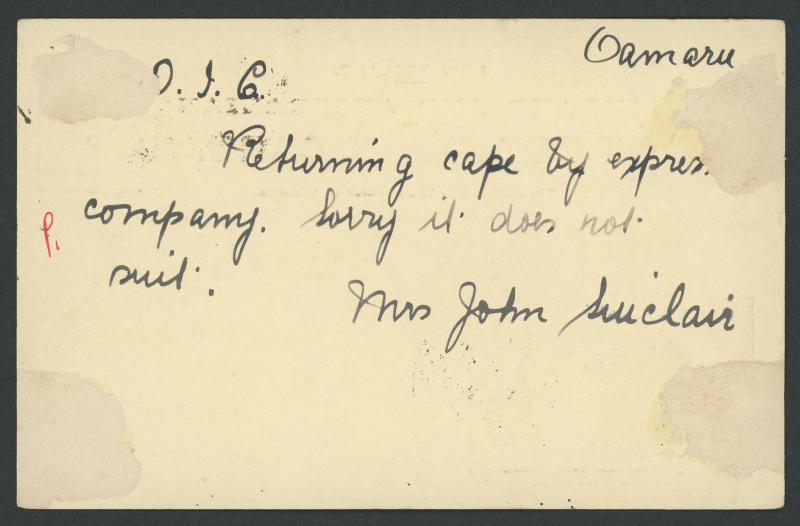 Oamaru
D. I. C.
Returning cape by expres.
company. Sorry it does not
suit.
Mrs John Sinclair